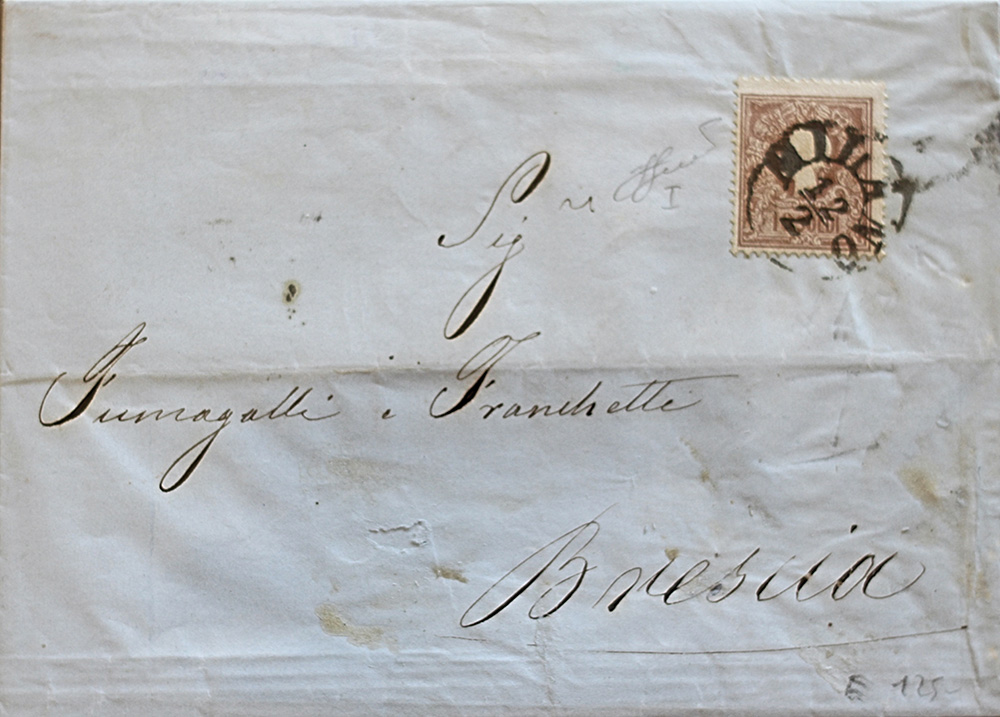 MILANO
12
2
Sig
ri
I
Fumagalli e Franchetti
Brescia
E 125-